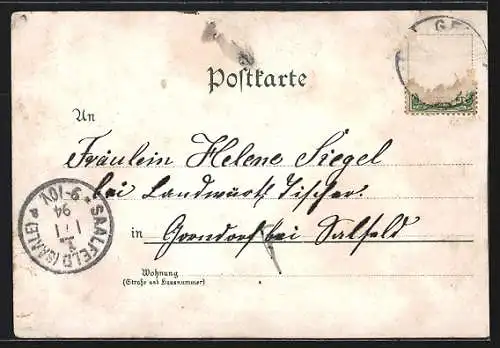 Postkarte
An
Fräulein Helene Siegel
bei Landwürt Tischer.
in Gorndorf bei Salfeld
Wohnung
(Straße und Hausnummer)
SAALFELD (SAALE)
9-10V.
94